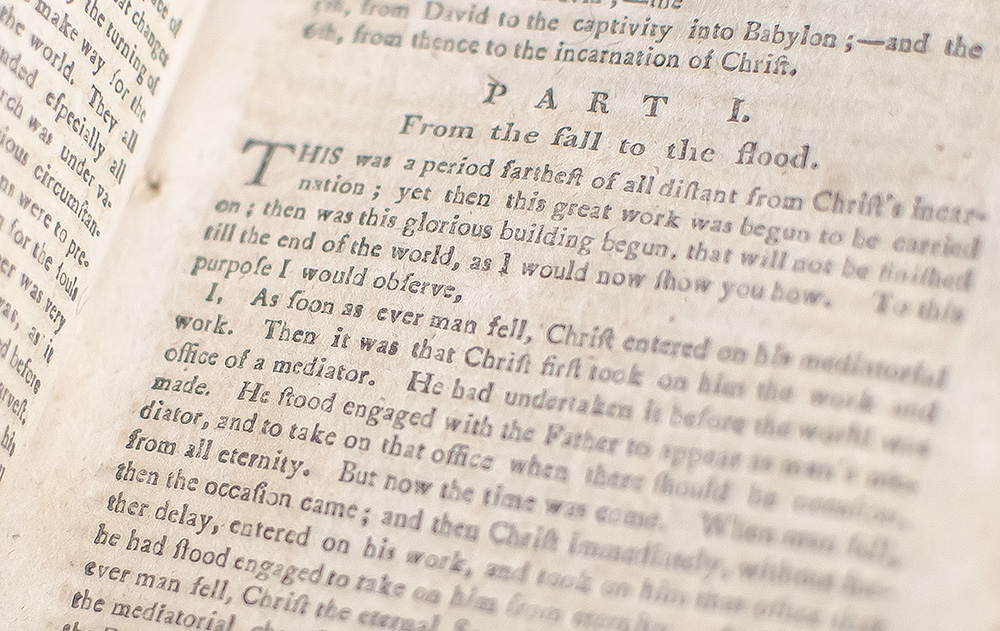 ace of
at changes
the turning of
make way for the
the world. They all
nded eſpecially all
rch was under va-
ious circumſtan-
ns were to pre-
n for the ſouls
er was very
was, as it
ed before
arveſt.
his
5th, from David to the captivity into Babylon;—and the
6th, from thence to the incarnation of Chriſt.
PART I.
From the fall to the flood.
THIS was a period fartheſt of all diſtant from Chriſt's incar-
nation; yet then this great work was begun to be carried
on; then was this glorious building begun, that will not be finiſhed
till the end of the world, as I would now ſhow you how. To this
purpoſe I would obſerve,
I. As ſoon as ever man fell, Chriſt entered on his mediatorial
work. Then it was that Chriſt firſt took on him the work and
office of a mediator. He had undertaken it before the world was
made. He ſtood engaged with the Father to appear as man's me-
diator, and to take on that office when there ſhould be occaſion,
from all eternity. But now the time was come. When man fell,
then the occaſion came; and then Chriſt immediately, without fur-
ther delay, entered on his work, and took on him that office that
he had ſtood engaged to take on him from eternity.
ever man fell, Chriſt the eternal
the mediatorial